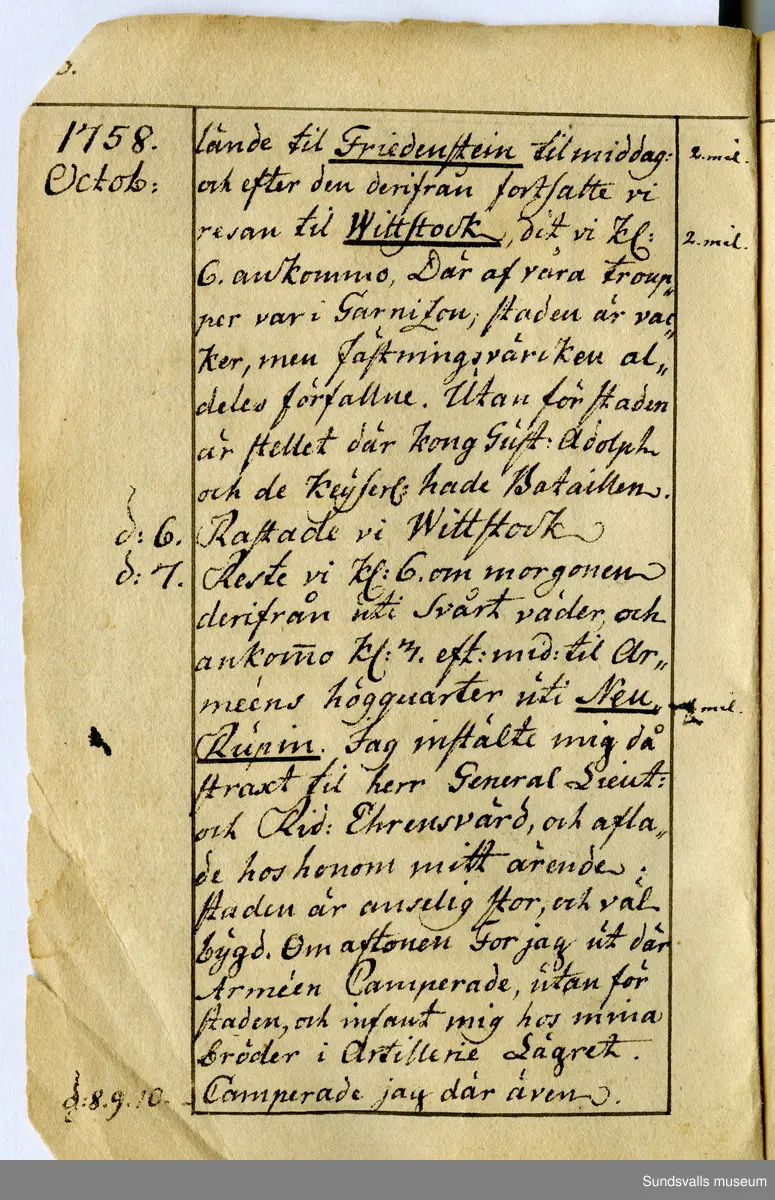 1758.
Octob:
lände til Friedenstein til middag: 2. mil.
och efter den derifrån fortsatte vi
resan til Wittstock, dit vi kl: 2. mil.
6. ankommo, Där af våra troup„
per var i Garnison, staden är vac„
ker, men fästningsvärcken al„
deles förfallne. Utan för staden
är stellet där kong Gust: Adolph
och de Keyserl: hade Bataillen.
d: 6. Rastade vi Wittstock
d: 7. Reste vi kl: 6. om morgonen
derifrån uti svårt väder, och
ankom̄o kl: 3. eft: mid: til Ar„
méens högquarter uti Neu„ mil.
Rupin. Jag instälte mig då
straxt til herr General Lieut:
och Rid: Ehrensvärd, och afla„
de hos honom mitt ärende.
staden är anselig stor, och väl
bygd. Om aftonen For jag ut där
Arméen Camperade, utan för
staden, och infant mig hos mina
bröder i Artillerie Lägret.
d: 8. 9. 10. Camperade jag där även.
Sundsvalls museum